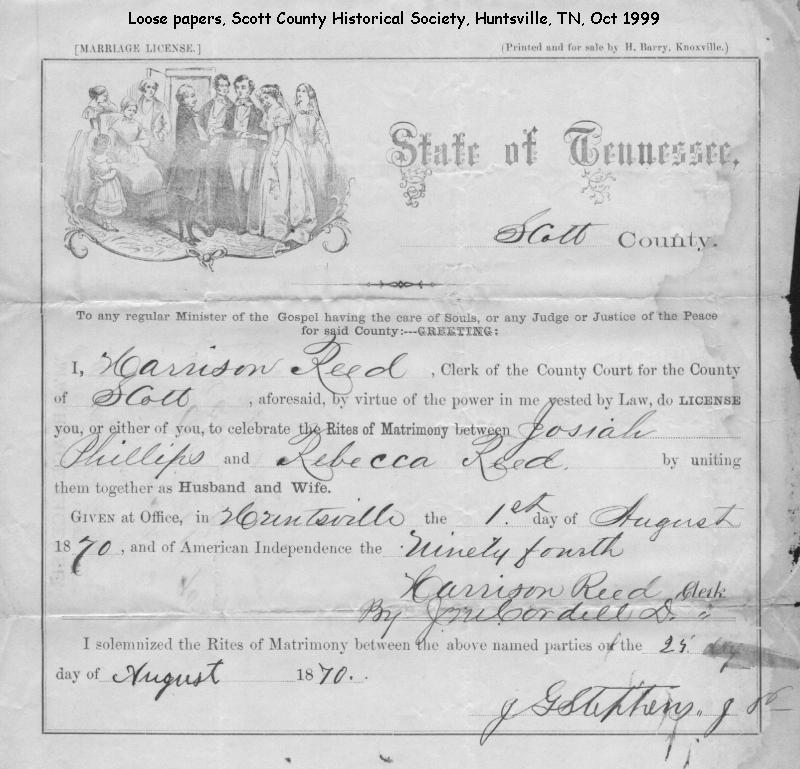 Loose papers, Scott County Historical Society, Huntsville, TN, Oct 1999
[MARRIAGE LICENSE.] (Printed and for sale by H. Barry, Knoxville.)
State of Tennessee,
Scott County.
To any regular Minister of the Gospel having the care of Souls, or any Judge or Justice of the Peace
for said County:---GREETING:
I, Harrison Reed, Clerk of the County Court for the County
of Scott, aforesaid, by virtue of the power in me vested by Law, do LICENSE
you, or either of you, to celebrate the Rites of Matrimony between Josiah
Phillips and Rebecca Reed. by uniting
them together as Husband and Wife.
GIVEN at Office, in Huntsville the 1st day of August
1870, and of American Independence the Ninety fourth
Harrison Reed Clerk
By Cordell D.
I solemnized the Rites of Matrimony between the above named parties on the 25 day
day of August 1870.
J G Stephens,